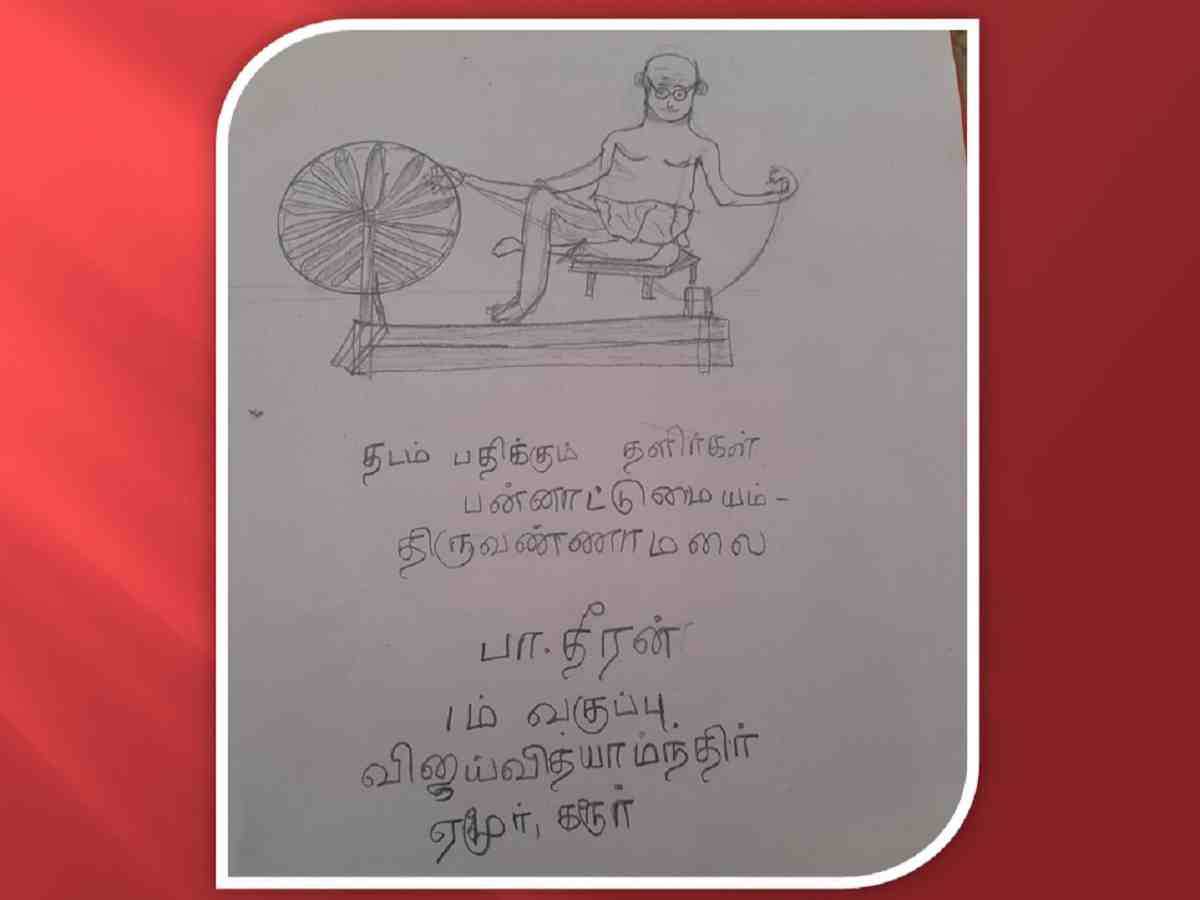 தடம் பதிக்கும் தளிர்கள்
பன்னாட்டுமையம்-
திருவண்ணாமலை
பா.தீரன்
1ம் வகுப்பு
விஜய்வித்யாம்ந்திர்
ஏமூர், கரூர்